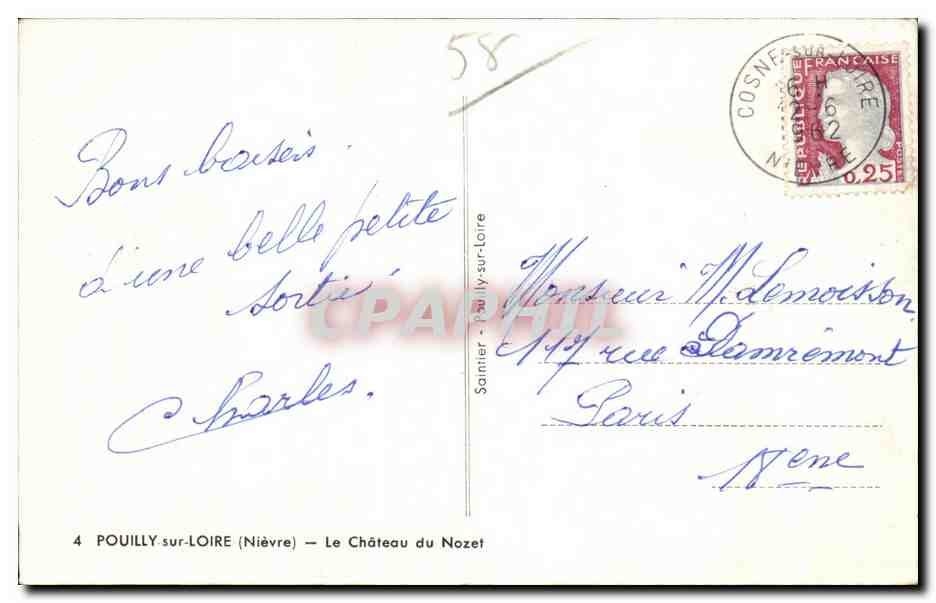 58
COSNE-SUR-LOIRE
NIEVRE
RÉPUBLIQUE FRANÇAISE
POSTES
0,25
Bons baisers.
d'une belle petite
sortie
Charles.
CPAPHIL
Saintier - Pouilly-sur-Loire
Monsieur M. Lemoisson
117 rue Damrémont
Paris
18ene
4 POUILLY-sur-LOIRE (Nièvre) — Le Château du Nozet